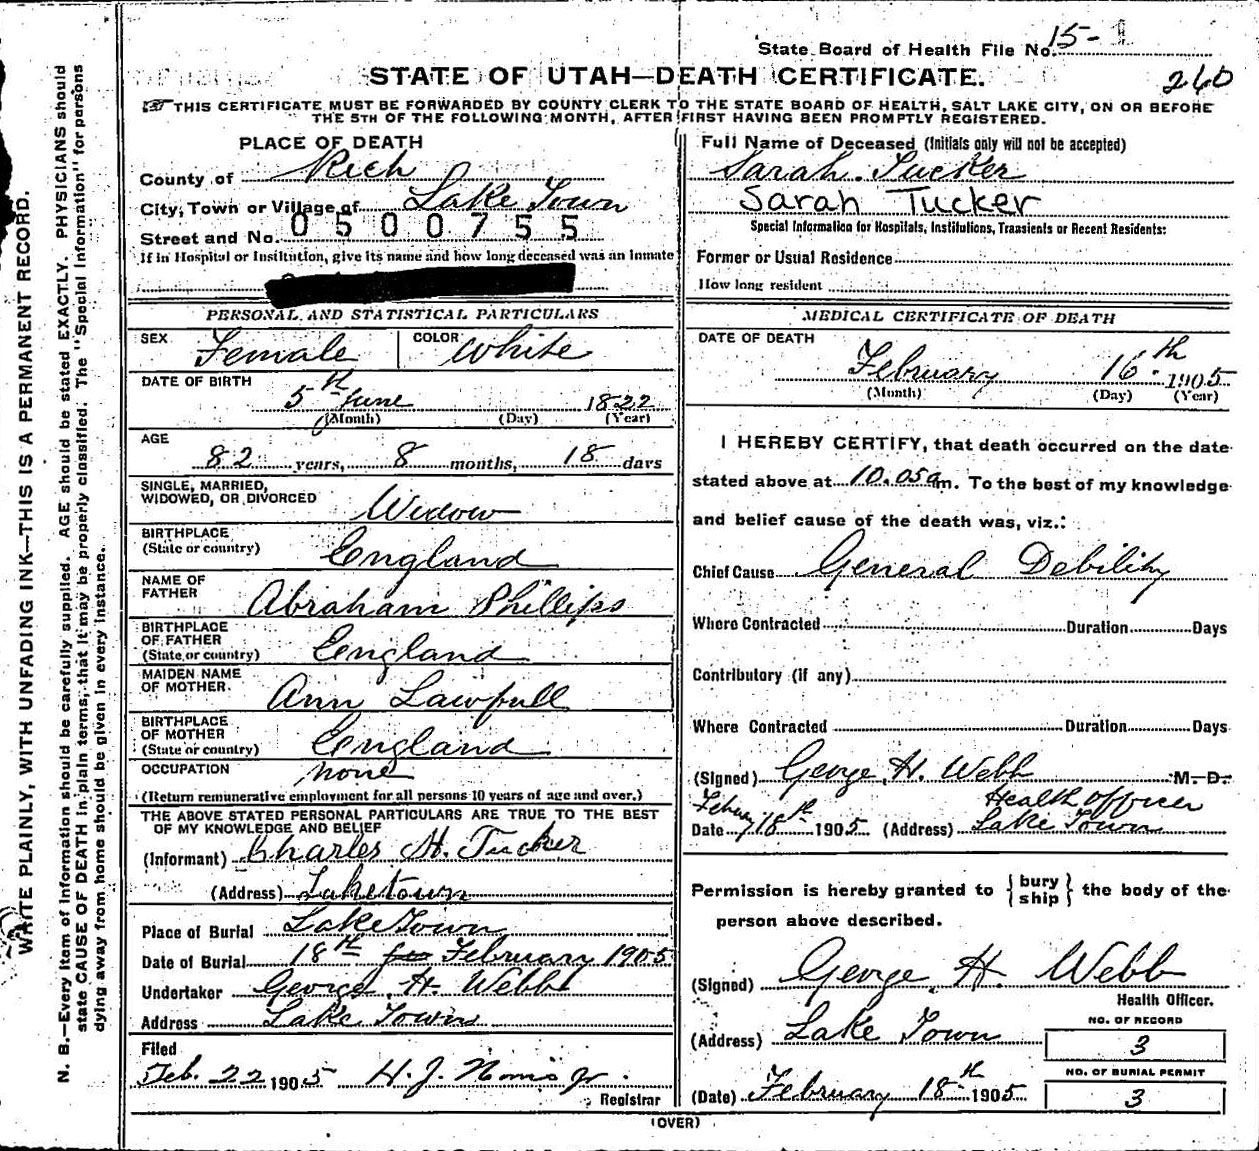 State Board of Health File No. 15-1
STATE OF UTAH—DEATH CERTIFICATE.
260
THIS CERTIFICATE MUST BE FORWARDED BY COUNTY CLERK TO THE STATE BOARD OF HEALTH, SALT LAKE CITY, ON OR BEFORE
THE 5TH OF THE FOLLOWING MONTH, AFTER FIRST HAVING BEEN PROMPTLY REGISTERED.
WRITE PLAINLY, WITH UNFADING INK—THIS IS A PERMANENT RECORD.
N. B.—Every item of information should be carefully supplied. AGE should be stated EXACTLY. PHYSICIANS should
state CAUSE OF DEATH in plain terms, that it may be properly classified. The "Special Information" for persons
dying away from home should be given in every instance.
PLACE OF DEATH
County of Rich
City, Town or Village of Lake Town
Street and No. 0500755
If in Hospital or Institution, give its name and how long deceased was an inmate
PERSONAL AND STATISTICAL PARTICULARS
SEX Female COLOR White
DATE OF BIRTH
5th June 1822
(Month) (Day) (Year)
AGE
82 years, 8 months, 18 days
SINGLE, MARRIED,
WIDOWED, OR DIVORCED Widow
BIRTHPLACE
(State or country) England
NAME OF
FATHER Abraham Phillips
BIRTHPLACE
OF FATHER
(State or country) England
MAIDEN NAME
OF MOTHER. Ann Lawfull
BIRTHPLACE
OF MOTHER
(State or country) England
OCCUPATION none
(Return remunerative employment for all persons 10 years of age and over.)
THE ABOVE STATED PERSONAL PARTICULARS ARE TRUE TO THE BEST
OF MY KNOWLEDGE AND BELIEF
(Informant) Charles H. Tucker
(Address) Laketown
Place of Burial Lake Town
Date of Burial 18th February 1905
Undertaker George H. Webb
Address Lake Town
Filed
Feb. 22 1905 H. J. Norris Jr.
Registrar
Full Name of Deceased (Initials only will not be accepted)
Sarah Tucker
Sarah Tucker
Special Information for Hospitals, Institutions, Transients or Recent Residents:
Former or Usual Residence
How long resident
MEDICAL CERTIFICATE OF DEATH
DATE OF DEATH
February 16th 1905
(Month) (Day) (Year)
I HEREBY CERTIFY, that death occurred on the date
stated above at 10.05 a m. To the best of my knowledge
and belief cause of the death was, viz.:
Chief Cause General Debility
Where Contracted Duration Days
Contributory (if any)
Where Contracted Duration Days
(Signed) George H. Webb M. D.
Health Officer
Date Febuary 18th 1905 (Address) Lake Town
Permission is hereby granted to {bury ship} the body of the
person above described.
(Signed) George H. Webb
Health Officer.
(Address) Lake Town
NO. OF RECORD
3
NO. OF BURIAL PERMIT
3
(Date) February 18th 1905
(OVER)